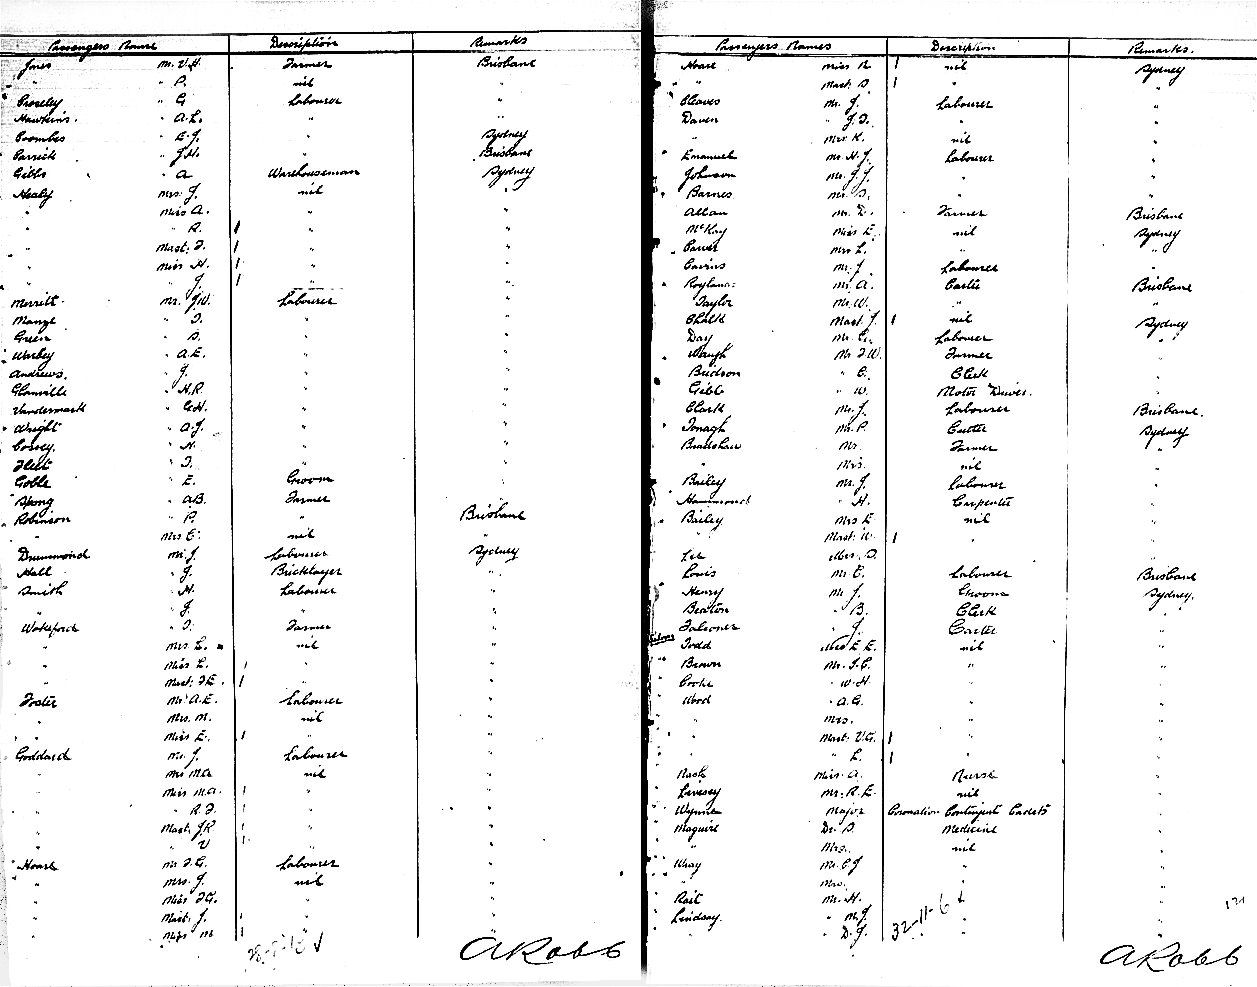 Passengers Name Description Remarks
Jones Mr. V.H. Farmer Brisbane
" " P. nil "
" G Labourer "
Hawkins. " A.L. " "
Coombes " E.J. " Sydney
Carrick " J.H. " Brisbane
Gibbs " A Warehouseman Sydney
Healy Mrs. J. nil "
" Miss A. " "
" " R. " "
" Mast. J. " "
" Miss H. " "
" " J. " "
Merritt Mr. J.W. Labourer "
" " "
Green " S. " "
Warbey " A.E. " "
Andrews. " J. " "
Glanville " H.R. " "
Vandermark " G.H. " "
Wright " A.J. " "
" H. " "
" "
Goble " E. Groom "
" A.B. Farmer "
Robinson " P. " Brisbane
" Mrs C. nil "
Drummond Mr. J. Labourer Sydney
Hall " J. Bricklayer "
Smith " H. Labourer "
" " J. " "
Wakeford " Farmer "
" Mrs L. nil "
" Miss L. " "
" Mast. " "
Foster Mr A.E. Labourer "
" Mrs. M. nil "
" Miss E. " "
Goddard Mr. J. Labourer "
" Mrs M.A. nil "
" Miss M.A. " "
" " "
" Mast. J.R " "
" " V " "
Hoare Mr F.G. Labourer "
" Mrs. J. nil "
" Miss F.G. " "
" Mast. J. " "
" Miss M " "
A Robb
Passengers Names Description Remarks.
Hoare Miss R nil Sydney
" Mast. S. " "
Cleaves Mr. J. Labourer "
Daven " " "
" Mrs. K. nil "
Emanuel Mr. H.J. Labourer "
Johnson Mr. J.J. " "
Barnes Mr. S. " "
Allan Mr. D. Farmer Brisbane
McKay Miss E. nil Sydney
Mrs L. " "
Cairns Mr. J. Labourer "
Mr. A. Carter Brisbane
Taylor Mr. W. " "
Chalk Mast. J. nil Sydney
Day Mr. Labourer "
Waugh Mr J.W. Farmer "
Bridson " C. Clerk "
Gibb " W. Motor Driver. "
Clark Mr. J. Labourer Brisbane.
Mr. P. Carter Sydney
Bradshaw Mr. Farmer "
" Mrs. nil "
Bailey Mr. J. Labourer "
Hammond " H. Carpenter "
Bailey Mrs E nil "
" Mast. W. " "
Lee S. " "
Louis Mr. C. Labourer Brisbane
Henry Mr J. Groom Sydney.
Beaton " B. Clerk "
Falconer " J. Carter "
Todd E.E. nil "
Brown Mr. " "
Cooke " W.H. " "
Wood " A.G. " "
" Mrs. " "
" Mast. V.G. " "
" " L. " "
Nash Miss. A. Nurse "
Livesey Mr. R.E. nil "
Wynne Major Coronation Contingent Cadets "
Maguire Dr. S. Medicine "
" Mrs. nil "
Wray Mr. C.J " "
" Mrs. " "
Rait Mr. H. " "
Lindsay. " M.J. " "
" " D.J. " "
32-11-6
A Robb